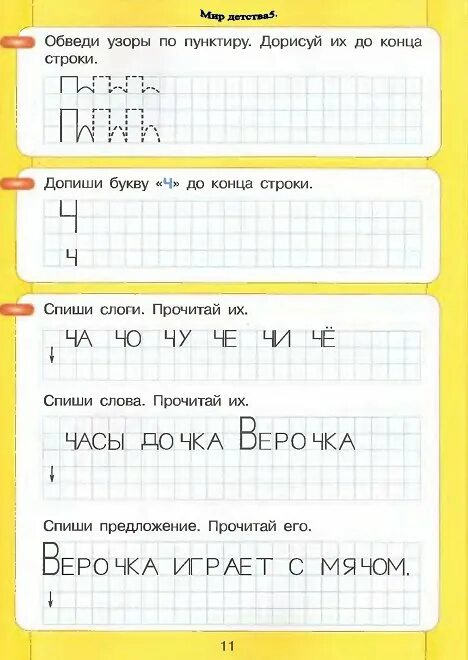 Мир детства5.
Обведи узоры по пунктиру. Дорисуй их до конца
строки.
Допиши букву «Ч» до конца строки.
Ч
ч
Спиши слоги. Прочитай их.
ЧА ЧО ЧУ ЧЕ ЧИ ЧЁ
Спиши слова. Прочитай их.
ЧАСЫ ДОЧКА ВЕРОЧКА
Спиши предложение. Прочитай его.
ВЕРОЧКА ИГРАЕТ С МЯЧОМ.
11